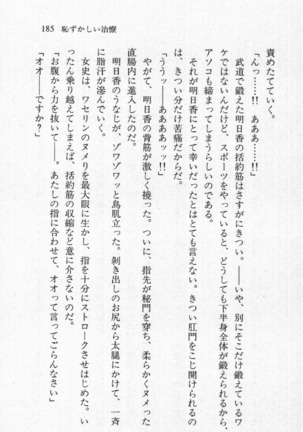 185 恥ずかしい治療
責めたてていく。
「んっ……!! あああ……!!」
武道で鍛えた明日香の括約筋はさすがにきつい。――いや、別にそこだけ鍛えているワ
ケではないんだけど、スポーツをやっていると、どうしても下半身全体が鍛えられるから、
アソコも締まってしまうらしいのである。
それが明日香にとって幸いだったとはとても言えない。きつい肛門をこじ開けられるの
は、きつい分だけ苦痛だからだ。
「ううっ……!! あああああッ!!」
やがて、明日香の背筋が激しく撓った。ついに、指先が秘門を穿ち、柔らかくヌメった
直腸内に進入したのだ。
明日香のうなじが、ゾワゾワッと鳥肌立った。剥き出しのお尻から太腿にかけて、一斉
に脂汗が滲んでいく。
女史は、ワセリンのヌメリを最大限に生かし、指を十分にストロークさせはじめた。い
ったん乗り越えてしまえば、括約筋の収縮など意に介さないのだ。
「お腹から力を抜いて！――あたしの指に合わせて、オオって言ってごらんなさい」
「オオ――ですか？」